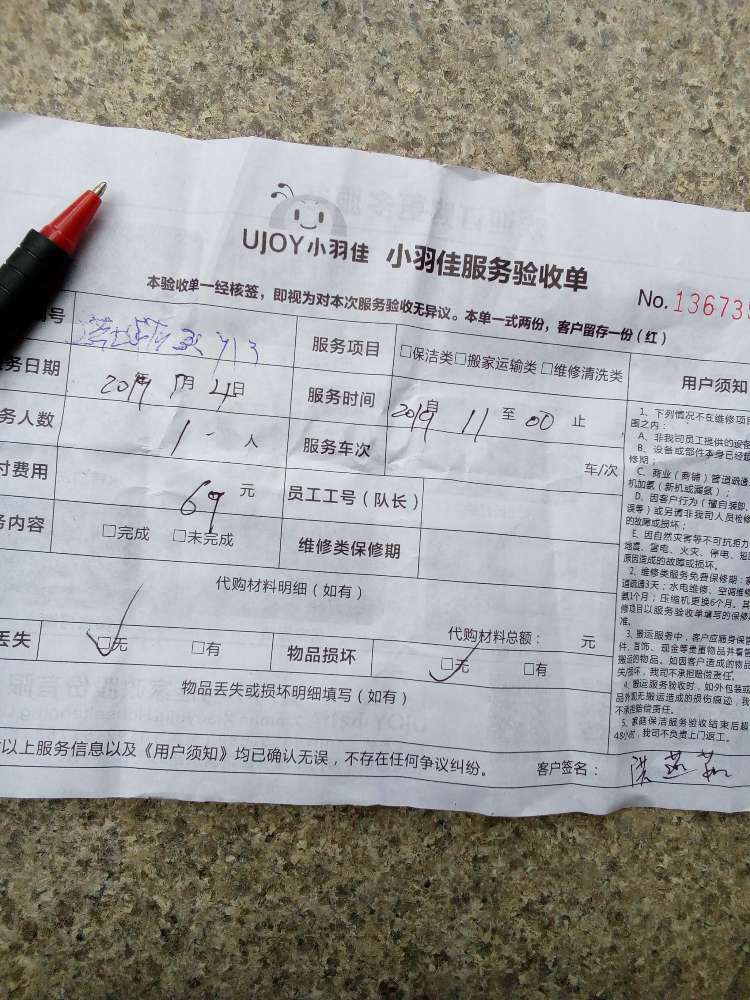 UJOY小羽佳 小羽佳服务验收单
No. 13673
本验收单一经核签，即视为对本次服务验收无异议。本单一式两份，客户留存一份（红）
号
服务项目 □保洁类□搬家运输类 □维修清洗类
务日期 2019年 月4日
服务时间 2019自 11 至 00 止
务人数 1 人
服务车次 车/次
付费用 69 元
员工工号（队长）
务内容 □完成 □未完成
维修类保修期
代购材料明细（如有）
代购材料总额： 元
丢失 □无 □有
物品损坏 □无 □有
物品丢失或损坏明细填写（如有）
以上服务信息以及《用户须知》均已确认无误，不存在任何争议纠纷。
客户签名： 洪
用户须知
1、下列情况不在维修项目
围之内：
A、非我司员工提供的设备
B、设备或部件本身已经超
修期；
C、商业（商铺）管道疏通、
机加氨（新机或漏氨）；
D、因客户行为（擅自装卸、
误等）或另请非我司人员检修
的故障或损坏；
E、因自然灾害等不可抗拒力
地震、雷电、火灾、停电、短
原因造成的故障或损坏。
2、维修类服务免费保修期：
道疏通3天；水电维修、空调维修
氨1个月；压缩机更换6个月。其
修项目以服务验收单填写的保修
准。
3、搬运服务中，客户应随身保管
件、首饰、现金等贵重物品并看管
搬运的物品，如因客户造成的物品
失/损坏，我司不承担赔偿责任。
4、搬运服务验收时，如外包装或
品外观无搬运造成的损伤痕迹，我
不承担赔偿责任。
5、家庭保洁服务验收结束后超
48小时，我司不负责上门返工。